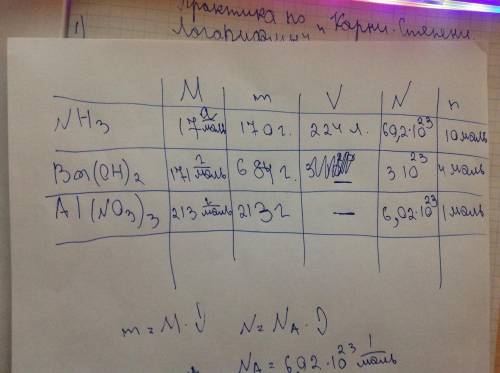 Практика по
1) Логарифмы и Корни. Степени
M m V N n
NH3 17 г/моль 170 г. 224 л. 60,2·10^23 10 моль
Ba(OH)2 171 г/моль 684 г — 3 10^23 4 моль
Al(NO3)3 213 г/моль 213 г — 6,02·10^23 1 моль
m = M·ν N = NA·ν
NA = 6,02·10^23 1/моль